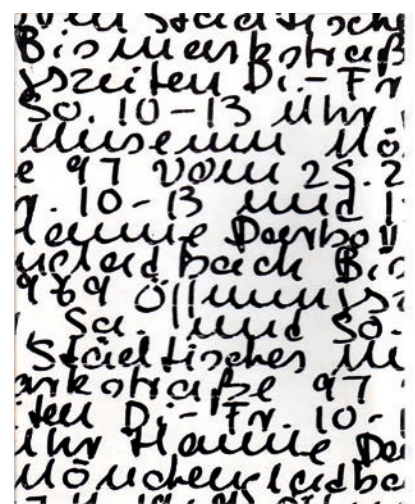 vom Städtische
Bismarkstraß
gszeiten Di.-Fr
So. 10-13 Uhr
Museum Mö
e 97 vom 25.2
r. 10-13 und 1
Hanne Darbov
ncheladbach Bis
969 Öffnungsz
Sa. und So.
Städtisches Mu
arkstraße 97
iten Di.-Fr. 10-1
Uhr Hanne Da
Mönchengladba